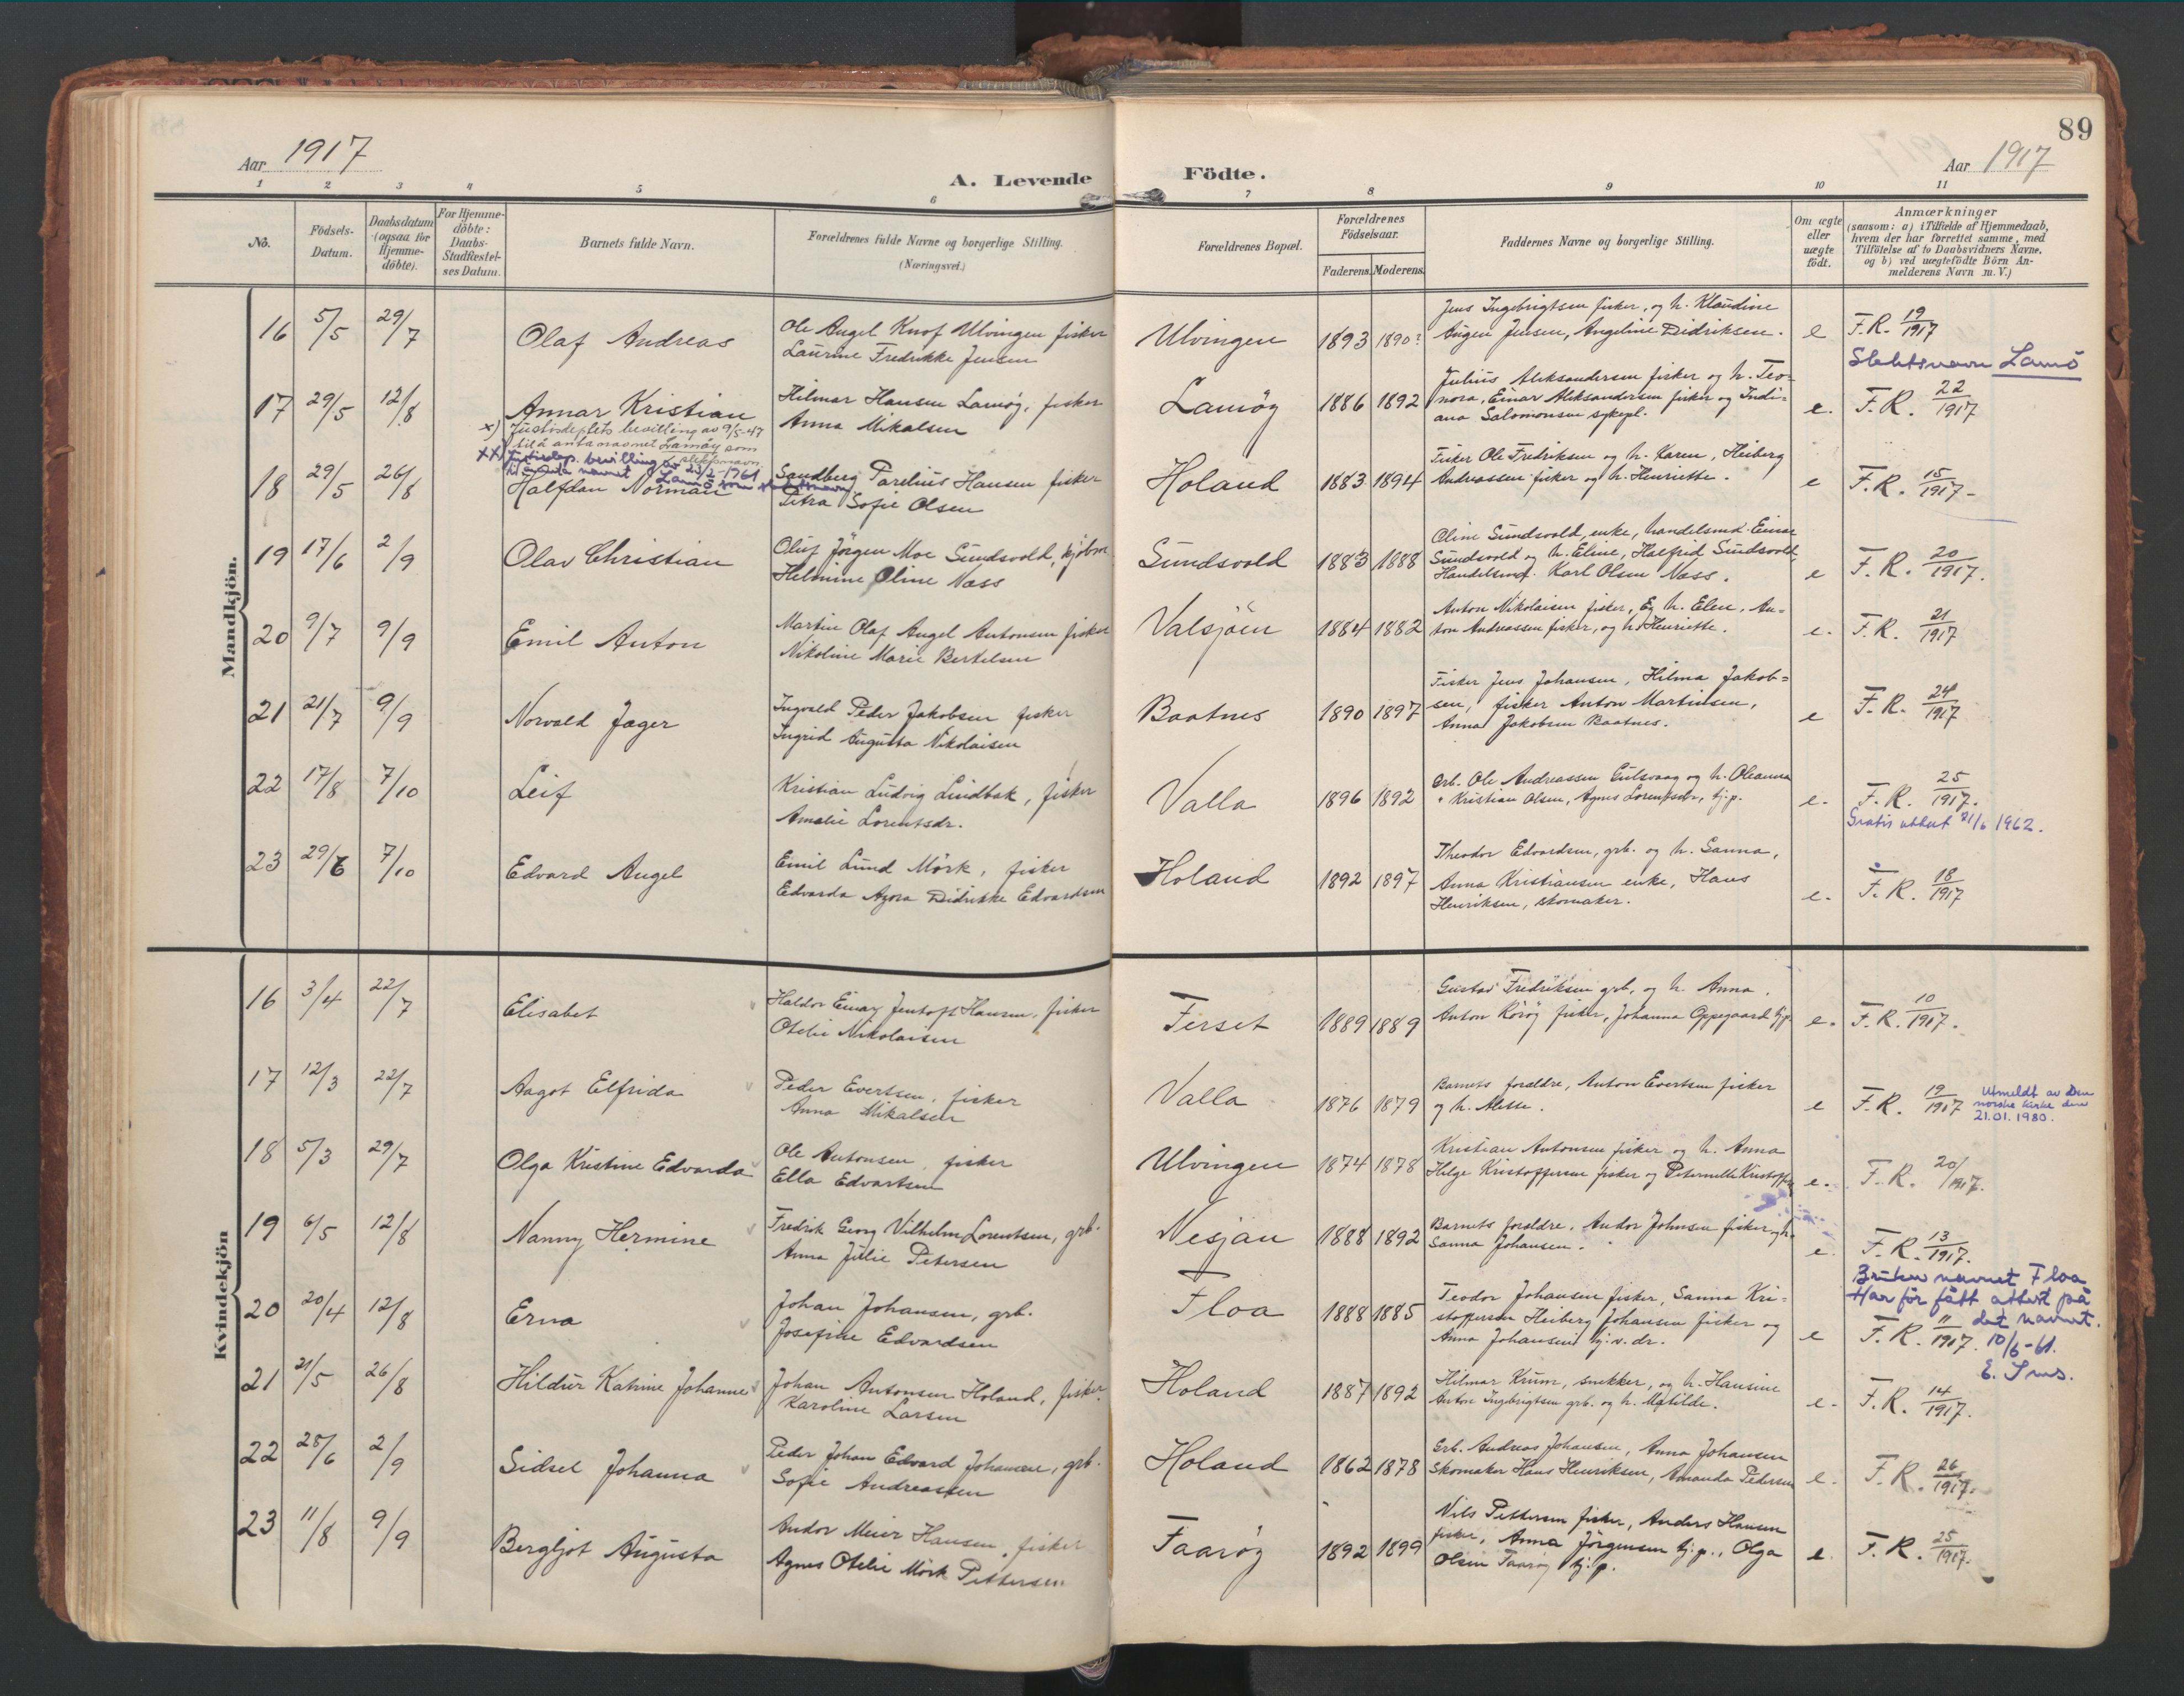 89
Aar 1917
A. Levende
Födte.
Aar 1917
1 2 3 4 5 6 7 8 9 10 11
No.
Födsels-
Datum.
Daabsdatum
(ogsaa for
Hjemme-
döbte).
For Hjemme-
döbte:
Daabs-
Stadfæstel-
ses Datum.
Barnets fulde Navn.
Forældrenes fulde Navne og borgerlige Stilling.
(Næringsvei.)
Forældrenes Bopæl.
Forældrenes
Födselsaar.
Faderens. Moderens.
Faddernes Navne og borgerlige Stilling.
Om ægte
eller
uægte
födt.
Anmærkninger
(saasom: a) i Tilfælde af Hjemmedaab,
hvem der har forrettet samme, med
Tilföielse af to Daabsvidners Navne,
og b) ved uægtefödte Börn An-
melderens Navn m. V.)
Mandkjön.
16 5/5 29/7 Olaf Andreas
Ole Angel Knof Ulvingen fisker
Laurine Fredrikke Jensen
Ulvingen 1893 1890?
Jens Ingebrigtsen fisker, og h. Klaudine
Augen Jensen, Angeline Didriksen.
e F.R. 19/1917
Slektsnavn Lamö
17 29/5 12/8 Annar Kristian
x) Justisdep'ets bevilling av 9/5-47
til å anta navnet Lamöy som
slektsnavn
xx) Justisdep. bevilling av 23/2-1961
til å anta navnet Lamö som slektsnavn
Hilmar Hansen Lamøy, fisker
Anna Mikalsen
Lamøy 1886 1892
Julius Aleksandersen fisker og h. Teo-
nora, Einar Aleksandersen fisker og Indi-
ana Salomonsen sykepl.
e. F.R. 22/1917
18 29/5 26/8 Halfdan Norman
Sandberg Parelius Hansen fisker
Petra Sofie Olsen
Holand 1883 1894
Fisker Ole Fredriksen og h. Karen, Heiberg
Andreassen fisker og h. Henriette.
e F.R. 15/1917-
19 17/6 2/9 Olav Christian
Oluf Jörgen Moe Sundsvold, kjöbm
Helmine Oline Næss
Sundsvold 1883 1888
Oline Sundsvold, enke, handelsmd. Einar
Sundsvold og h. Eline, Halfrid Sundsvold
Handelsmd. Karl Olsen Næss.
e F.R. 20/1917.
20 9/7 9/9 Emil Anton
Martin Olaf Angel Antonsen fisker
Nikoline Marie Bertelsen
Valsjöen 1884 1882
Anton Nikolaisen fisker, Eg h. Elen, An-
ton Andreassen fisker, og h. Henriette.
e. F.R. 21/1917
21 21/7 9/9 Norvald Jager
Ingvald Peder Jakobsen fisker
Ingrid Augusta Nikolaisen
Baatnes 1890 1897
Fisker Jens Johansen, Hilma Jakob-
sen, fisker Anton Martinsen,
Anna Jakobsen Baatnes.
e F.R. 24/1917
22 17/8 7/10 Leif
Kristian Ludvig Lindbak, fisker
Amalie Lorentsdr.
Valla 1896 1892
Grb. Ole Andreassen Gulsvaag og h. Oleanna
" Kristian Olsen, Agnes Lorentsdr, tj.p.
e. F.R. 25/1917.
Gratis attest 21/6 1962.
23 29/6 7/10 Edvard Angel
Emil Lund Mörk, fisker
Edvarda Agora Didrikke Edvardsen
Holand 1892 1897
Theodor Edvardsen, grb. og h. Sanna,
Anna Kristiansen enke, Hans
Henriksen, skomaker.
e. F.R. 18/1917
Kvindekjön
16 3/4 22/7 Elisabet
Haldor Einar Jentoft Hansen, fisker
Otelie Nikolaisen
Ferset 1889 1889
Gustav Fredriksen grb. og h. Anna.
Anton Rörøy fisker, Johanna Oppegaard tj.p.
e. F.R. 10/1917.
17 12/3 22/7 Aagot Elfrida
Peder Evertsen, fisker
Anna Mikalsen
Valla 1876 1879
Barnets foreldre, Anton Evertsen fisker
og h. Alette.
e F.R. 19/1917
Utmeldt av Den
norske kirke den
21.01.1980.
18 5/3 29/7 Olga Kristine Edvarda
Ole Antonsen, fisker
Ella Edvartsen
Ulvingen 1874 1878
Kristian Antonsen fisker og h. Anna
Helge Kristoffersen fisker og Peternelle Kristoffe
e. F.R. 20/1917.
19 6/5 12/8 Nanny Hermine
Fredrik Georg Vilhelm Lorentsen, grb.
Anna Julie Petersen
Nesjan 1888 1892
Barnets foreldre, Andor Johnsen fisker og h.
Sanna Johansen.
e. F.R. 13/1917.
20 20/4 12/8 Erna
Johan Johansen, grb.
Josefine Edvardsen
Floa 1888 1885
Teodor Johansen fisker, Sanna Kri-
stoffersen Heiberg Johansen fisker og
Anna Johansen tj.v. dr.
e F.R. 11/1917.
Bruker navnet Floa
Har för fått attest på
det navnet.
10/6-61.
21 21/5 26/8 Hildur Katrine Johanne
Johan Antonsen Holand, fisker
Karoline Larsen
Holand 1887 1892
Hilmar Krum, snekker, og h. Hansine
Anton Ingebrigtsen grb. og h. Matilde.
e- F.R. 14/1917.
22 28/6 2/9 Sidsel Johanna
Peder Johan Edvard Johansen, grb.
Sofie Andreassen
Holand 1862 1878
Grb. Andreas Johansen, Anna Johansen
Skomaker Hans Henriksen, Amanda Pedersen
e. F.R. 26/1917.
23 11/8 9/9 Bergljot Augusta
Andor Meier Hansen, fisker
Agnes Otelie Mörk Pettersen
Faarøy 1892 1899
Nils Pettersen fisker, Anders Hansen
fisker, Anna Jörgensen tj.p., Olga
Olsen Faarøy tj.p.
e. F.R. 25/1917.